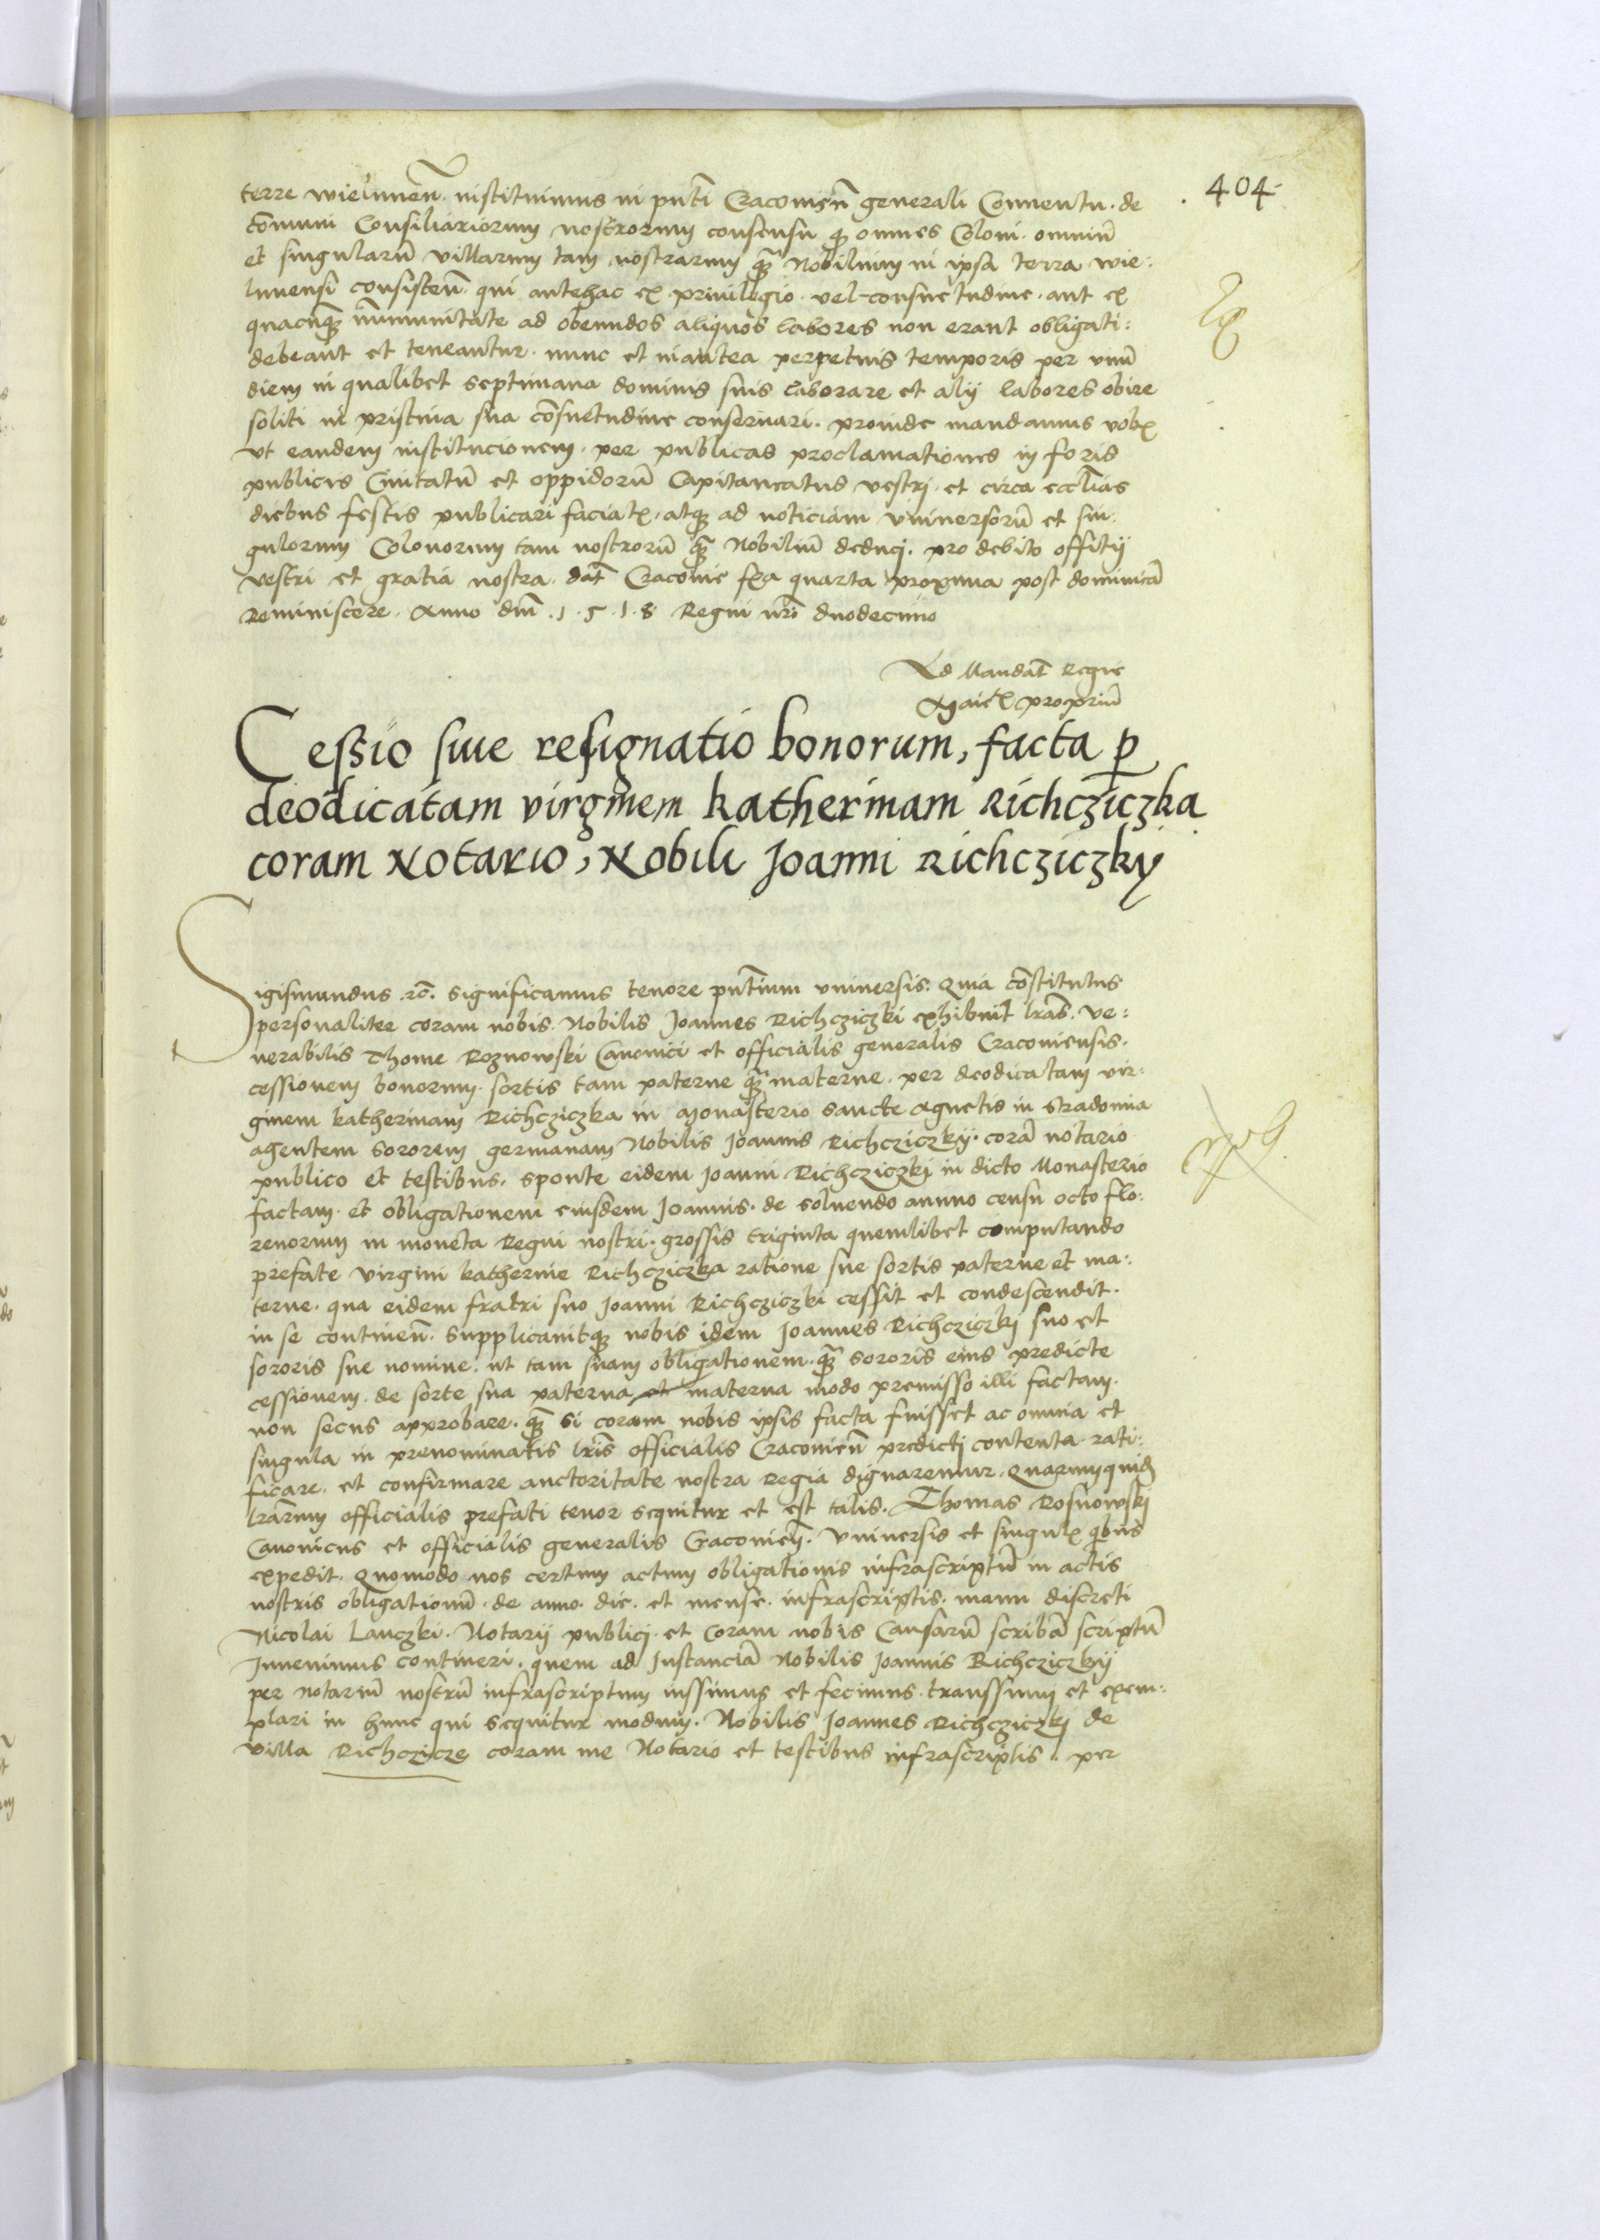 404
terre wielunen̄. instituimus in pn̄ti Cracouien̄ generali Conuentu. de
com̄uni Consiliariorum nostrorum consensu q̄ omnes Coloni. omniū
et singularū villarum tam nostrarum q̄ Nobilium in ipsa terra wie:
lunensi consisten̄. qui antehac ex priuilegio. vel consuetudine. aut ex
quacunq̄ im̄munitate ad obeundos aliquos labores non erant obligati:
debeant et teneantur. nunc et inantea perpetuis temporis per vnū
diem in qualibet septimana dominis suis laborare et alij labores obire
soliti in pristina sua cōsuetudine conseruari. proinde mandamus vobꝭ
vt eandem institucionem. per publicas proclamationes in foris
publicis Ciuitatū et oppidorū Capitaneatus vestri. et circa eccl̄ias
diebus festis publicari faciatꝭ. atq̄ ad noticiam vniuersorū et sin:
gulorum Colonorum tam nostrorū q̄ Nobiliū deduci. pro debito offitij
vestri et gratia nostra. dat̄ Cracouie fꝭa quarta proxima post dominicā
Reminiscere. Anno dn̄i .1.5.1.8. Regni nr̄i duodecimo
Ad Mandat̄ Regie
Maietꝭ propriū
Cessio siue resignatio bonorum, facta ꝑ
deodicatam virginem katherinam Richcziczka
coram Notario, Nobili Joanni Richcziczky
Sigismundus .rc̄. Significamus tenore pn̄tium vniuersis. Quia cōstitutus
personaliter coram nobis. Nobilis Joannes Richcziczki exhibuit lr̄as. Ve:
nerabilis Thome Roznowski Canonici et officialis generalis Cracouiensis.
cessionem bonorum. sortis tam paterne q̄ materne. per deodicatam vir:
ginem katherinam Richcziczka in Monasterio sancte Agnetis in Stradomia
agentem sororem germanam Nobilis Joannis Richcziczky. corā notario
publico et testibus. sponte eidem Joanni Richcziczki in dicto Monasterio
factam. et obligationem eiusdem Joannis. de soluendo annuo censu octo flo:
renorum in moneta Regni nostri. grossis triginta quemlibet computando
prefate virgini katherine Richcziczka ratione sue sortis paterne et ma:
terne. qua eidem fratri suo Joanni Richcziczki cessit et condescendit.
in se continen̄. Supplicauitq̄ nobis idem Joannes Richcziczki suo et
sororis sue nomine. ut tam suam obligationem. q̄ sororis eius predicte
cessionem. de sorte sua paterna et materna modo premisso illi factam.
non secus approbare. q̄ si coram nobis ipsis facta fuisset ac omnia et
singula in prenominatis lr̄is officialis Cracouien̄ predicti contenta rati:
ficare. et confirmare auctoritate nostra Regia dignaremur. Quarumquid̄
lr̄arum officialis prefati tenor sequitur et est talis. Thomas Rosnowski
Canonicus et officialis generalis Cracouien̄. Vniuersis et singulꝭ q̄bus
expedit. Quomodo nos certum actum obligationis infrascriptū in actis
nostris obligationū. de anno. die. et mense. infrascriptis. manu discreti
Nicolai Lanczki. Notarij publici. et coram nobis Causarū scribā scriptū
Inuenimus contineri. quem ad Instanciā Nobilis Joannis Richcziczky
per Notariū nostrū infrascriptum iussimus et fecimus. transsumi et exem:
plari in hunc qui sequitur modum. Nobilis Joannes Richcziczki de
villa Richczicze coram me Notario et testibus infrascriptis. per